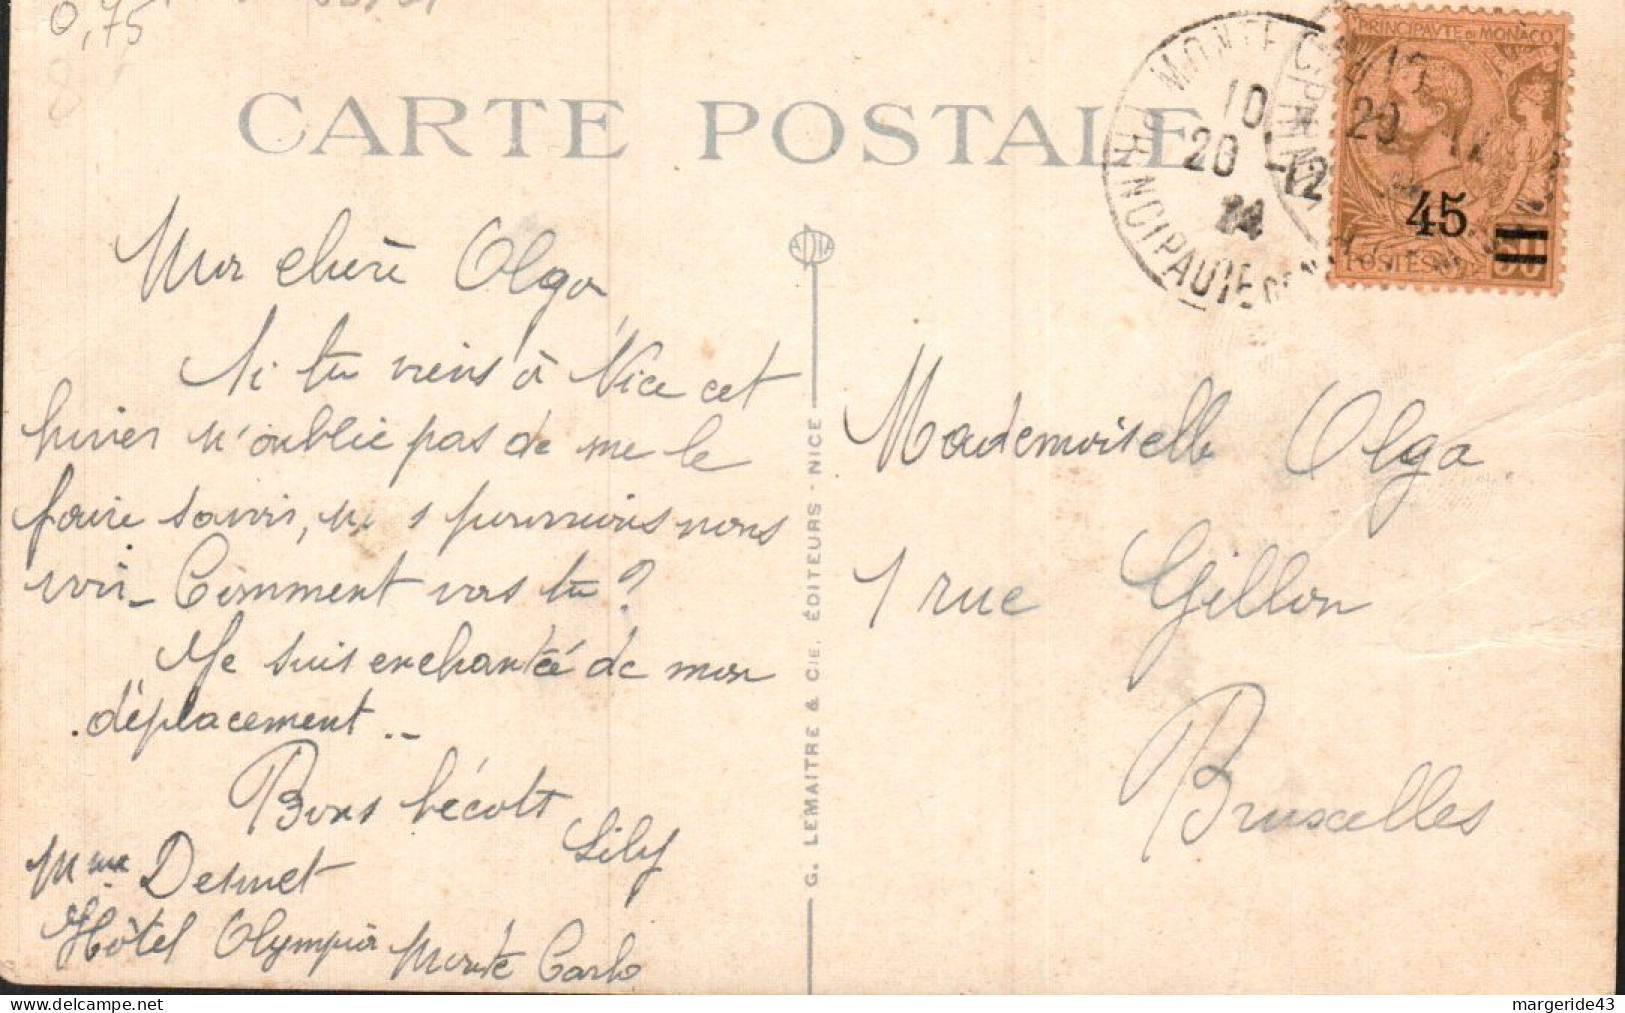 0,75
CARTE POSTALE
MONTE CARLO
10
20 -12
24
PRINCIPAUTE DE MONACO
PRINCIPAVTE DE MONACO
45
POSTES
50
Ma chère Olga,
Si tu viens à Nice cet
hiver n'oublie pas de me le
faire savoir, nous pourrions nous
voir_ Comment vas tu?
Je suis enchantée de mon
déplacement..
Bons bécots
Lily
Mme Desmet
Hôtel Olympia Monte Carlo
G. LEMAITRE & CIE. ÉDITEURS - NICE
Mademoiselle Olga
1 rue Gillon
Bruxelles
margeride43